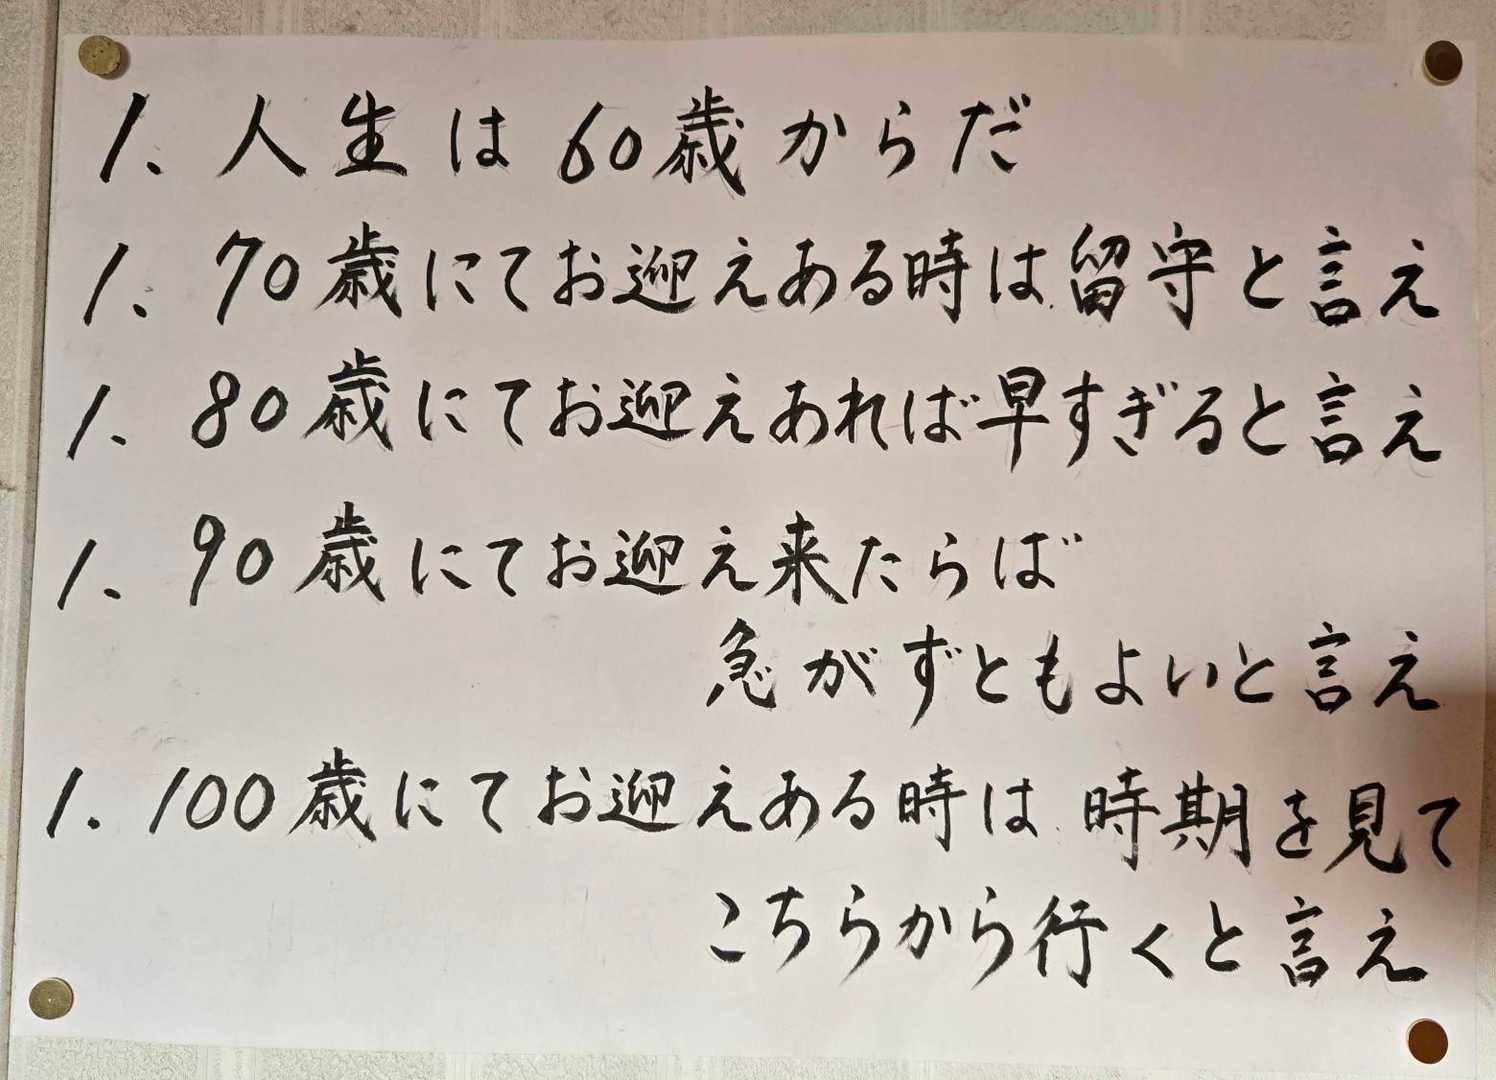 1、人生は60歳からだ
1、70歳にてお迎えある時は留守と言え
1、80歳にてお迎えあれば早すぎると言え
1、90歳にてお迎え来たらば
急がずともよいと言え
1、100歳にてお迎えある時は時期を見て
こちらから行くと言え